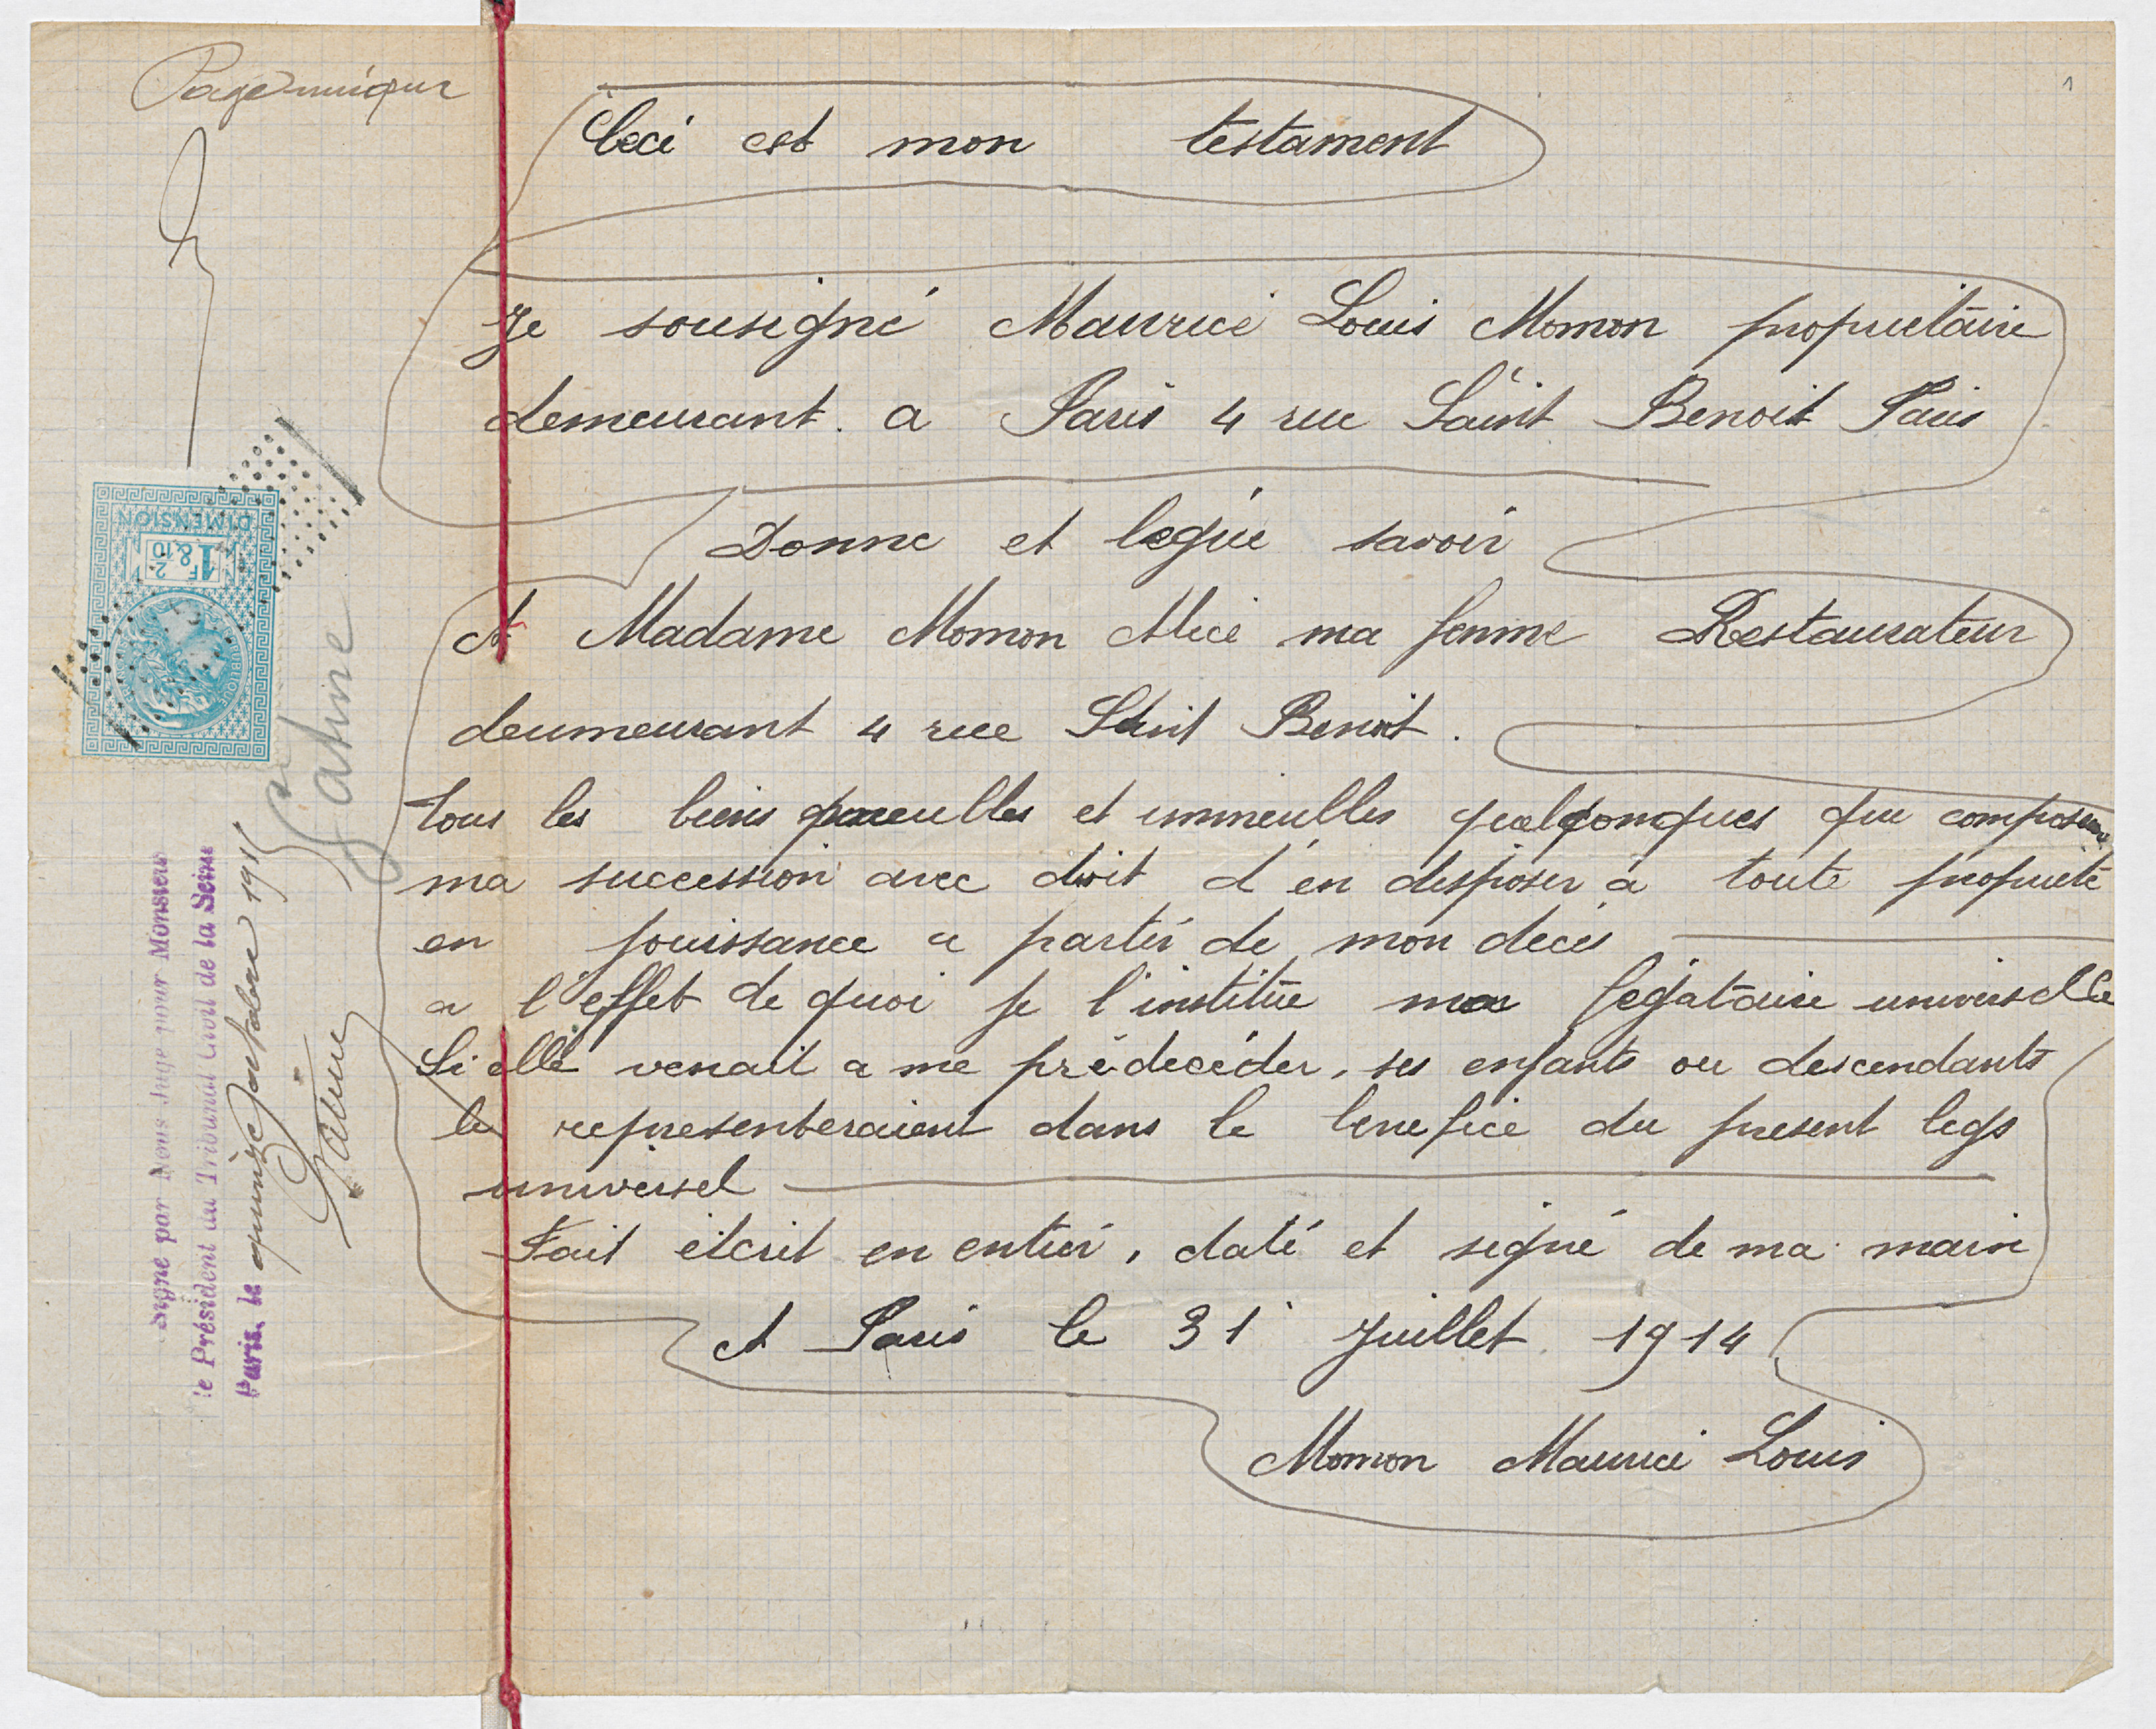 Page unique
1
Ceci est mon testament
Je sousigné Maurice Louis Momon propriétaire
demeurant a Paris 4 rue Saint Benoit Paris
Donne et legue savoir
A Madame Momon Alice ma femme Restaurateur
deumeurant 4 rue Saint Benoit.
tous les biens meubles et immeulles quelconques qui composent
ma succession avec droit d'en disposer a toute propriété
en jouissance a partir de mon décès
a l'effet de quoi je l'institue ma legataire universelle
Si elle venait a me prédecéder, ses enfants ou descendants
la representeraient dans le benefice du present legs
universel
Fait étcrit en entier, daté et signé de ma main
A Paris le 31 Juillet 1914
Momon Maurice Louis
DIMENSION
1F & 2/10
Signé par Nous Juge pour Monsieur
le Président du Tribunal Civil de la Seine
Paris, le quinze octobre 1915